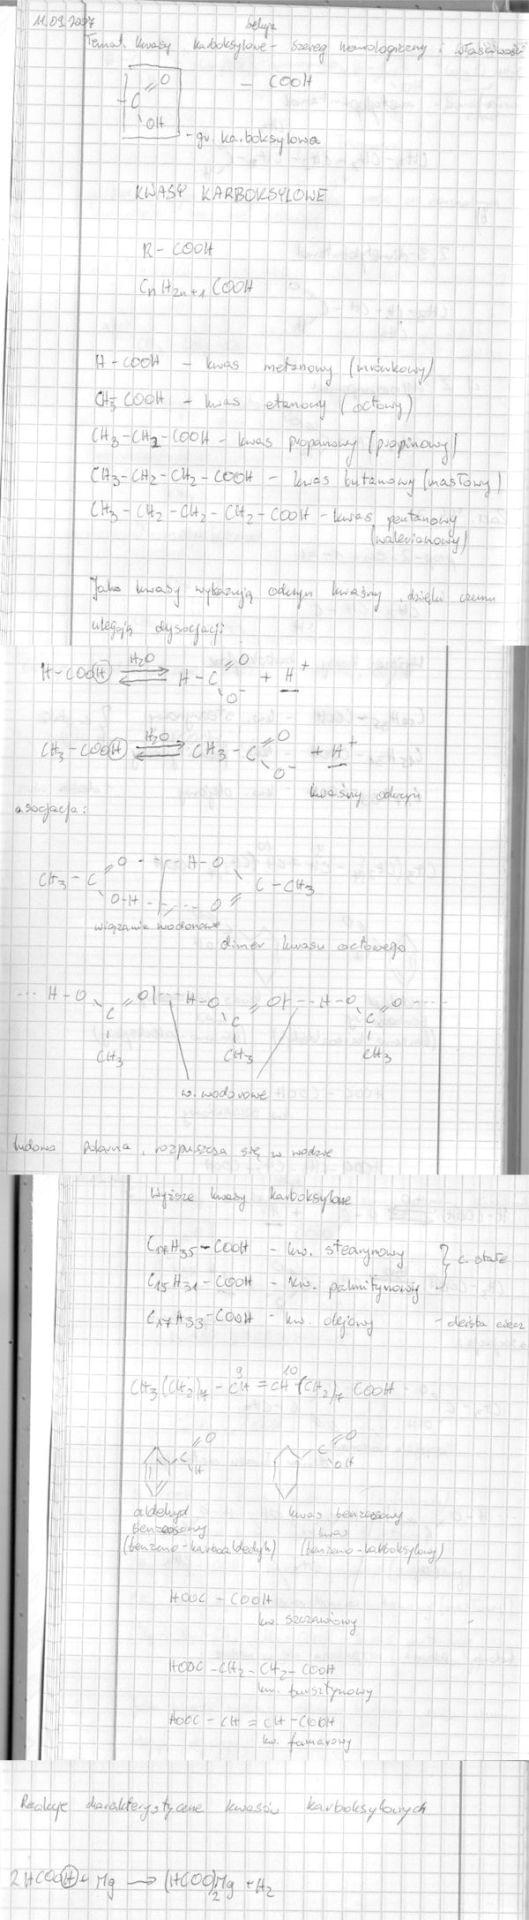 11.09.2007
lekcja
Temat: Kwasy karboksylowe - szereg homologiczny i właściwości
O
- COOH
- C
OH
- gr. karboksylowa
KWASY KARBOKSYLOWE
R - COOH
CnH2n+1 COOH
H - COOH - kwas metanowy (mrówkowy)
CH3-COOH - kwas etanowy (octowy)
CH3-CH2-COOH - kwas propanowy (propinowy)
CH3-CH2-CH2-COOH - kwas butanowy (masłowy)
CH3-CH2-CH2-CH2-COOH - kwas pentanowy
(walerianowy)
Jako kwasy wykazują odczyn kwaśny, dzięki czemu
ulegają dysocjacji
H-COOH ⇄ H2O H-C O O- + H+
CH3-COOH ⇄ H2O CH3-C O O- + H+
kwaśny odczyn
asocjacja:
O --- H-O
CH3-C C-CH3
O-H --- O
wiązanie wodorowe
dimer kwasu octowego
--- H-O O --- H-O O --- H-O O ---
C C C
CH3 CH3 CH3
w. wodorowe
budowa polarna, rozpuszcza się w wodzie
Wyższe kwasy karboksylowe
C17H35-COOH - kw. stearynowy } c. stałe
C15H31-COOH - kw. palmitynowy
C17H33-COOH - kw. olejowy - oleista ciecz
9 10
CH3(CH2)7-CH=CH-(CH2)7 COOH
C O H C O OH
aldehyd kwas benzoesowy
benzoesowy kwas
(benzeno-karboaldehyd) (benzeno-karboksylowy)
HOOC - COOH
kw. szczawiowy
HOOC-CH2-CH2-COOH
kw. bursztynowy
HOOC-CH=CH-COOH
kw. fumarowy
Reakcje charakterystyczne kwasów karboksylowych
2HCOOH + Mg → (HCOO)2Mg + H2